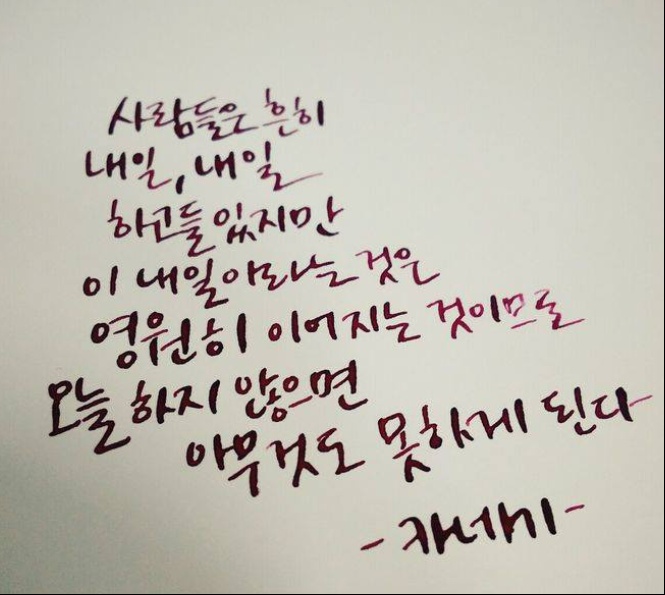 사람들은 흔히
내일, 내일
하고들 있지만
이 내일이라는 것은
영원히 이어지는 것이므로
오늘 하지 않으면
아무것도 못하게 된다
-카네기-